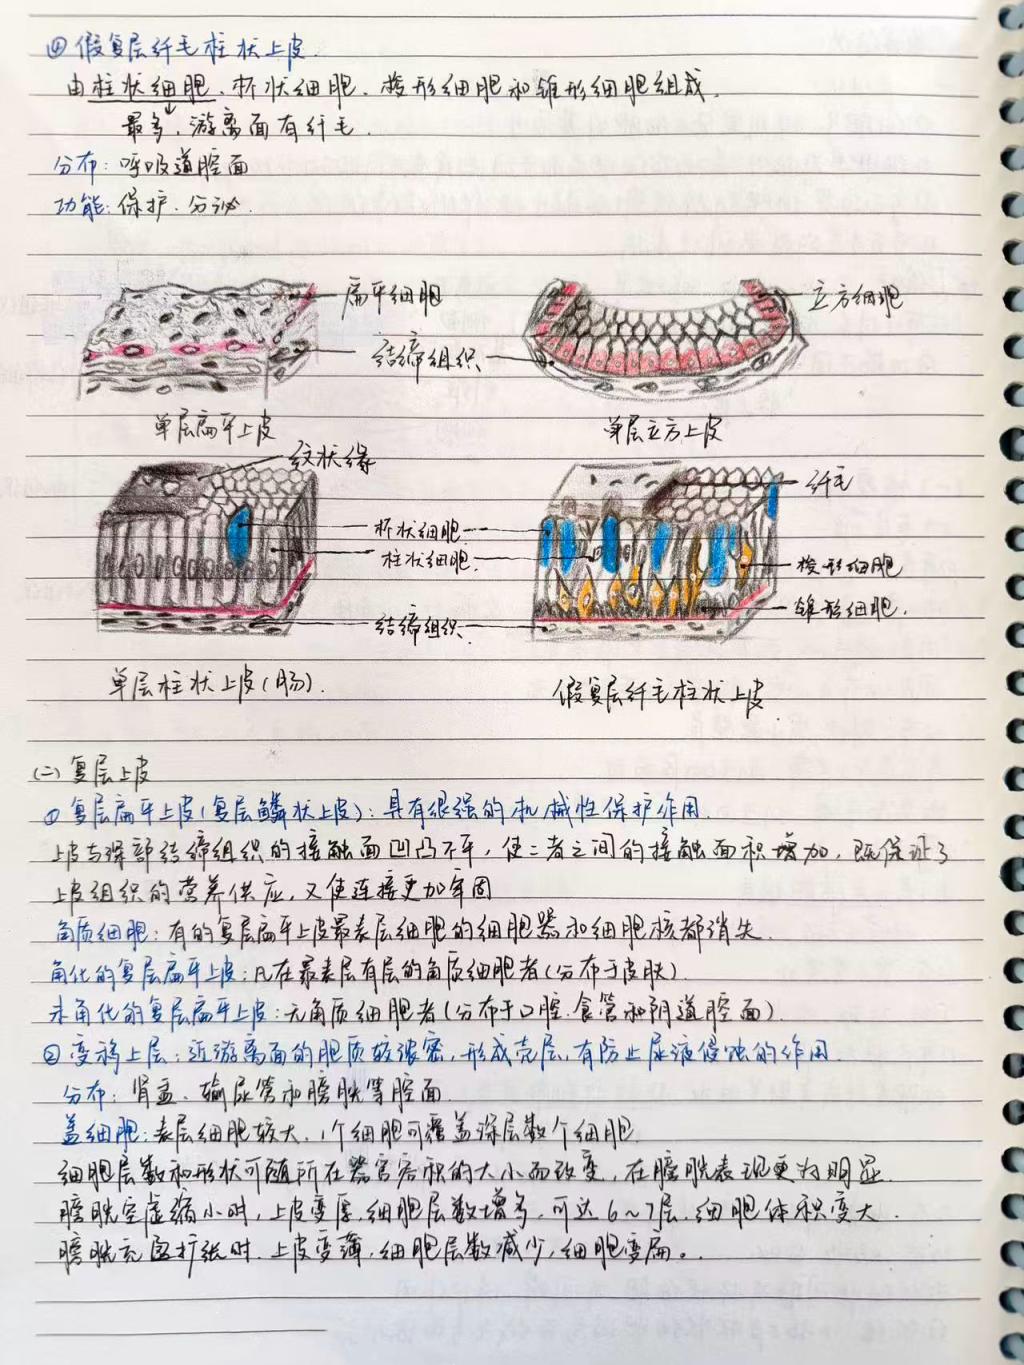 ④ 假复层纤毛柱状上皮.
由柱状细胞、杯状细胞、梭形细胞和锥形细胞组成.
最多,游离面有纤毛.
分布:呼吸道腔面
功能:保护、分泌.
扁平细胞
立方细胞
结缔组织
单层扁平上皮
单层立方上皮
纹状缘
纤毛
杯状细胞.
柱状细胞.
梭形细胞
锥形细胞.
结缔组织.
单层柱状上皮(肠).
假复层纤毛柱状上皮.
(二)复层上皮
① 复层扁平上皮(复层鳞状上皮):具有很强的机械性保护作用.
上皮与深部结缔组织的接触面凹凸不平,使二者之间的接触面积增加,既保证了
上皮组织的营养供应,又使连接更加牢固
角质细胞:有的复层扁平上皮最表层细胞的细胞器和细胞核都消失.
角化的复层扁平上皮:凡在最表层有层的角质细胞者(分布于皮肤).
未角化的复层扁平上皮:无角质细胞者(分布于口腔.食管和阴道腔面).
② 变移上层:近游离面的胞质较浓密,形成壳层,有防止尿液侵蚀的作用.
分布:肾盂、输尿管和膀胱等腔面.
盖细胞:表层细胞较大,1个细胞可覆盖深层数个细胞.
细胞层数和形状可随所在器官容积的大小而改变,在膀胱表现更为明显.
膀胱空虚缩小时,上皮变厚,细胞层数增多,可达6~7层,细胞体积变大.
膀胱充盈扩张时,上皮变薄,细胞层数减少,细胞变扁。